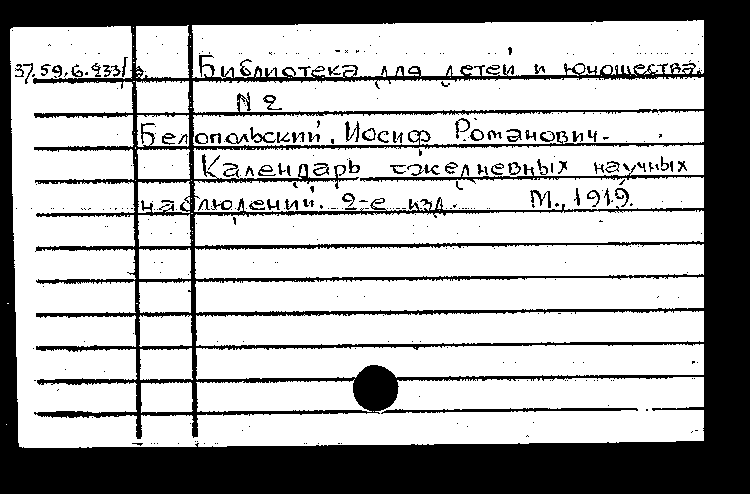 37.59.6.233/3. Библиотека для детей и юношества.
N 2
Белопольский, Иосиф Романович.
Календарь ежедневных научных
наблюдений. 2-е изд. М., 1919.